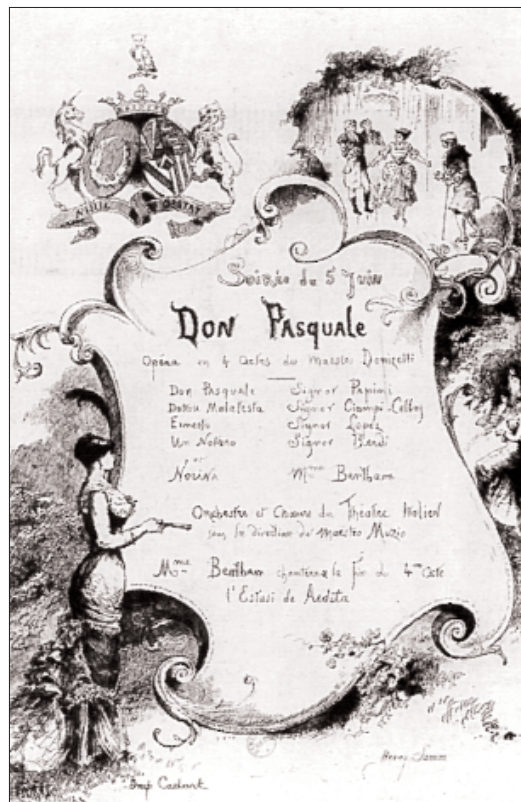 Soirée du 5 Juin
DON PASQUALE
Opéra en 4 actes du Maestro Donizetti
Don Pasquale Signor
Dottor Malatesta Signor Ciampi
Ernesto Signor Lopez
Un Notaro Signor
et
NORINA Mme Bentham
Orchestre et Chœurs du Théâtre Italien
sous la direction du Maestro Muzio
Mme Bentham chantera à la fin du 4me Acte
l'Estasi de Arditi
Imp Cadart
Henry Somm